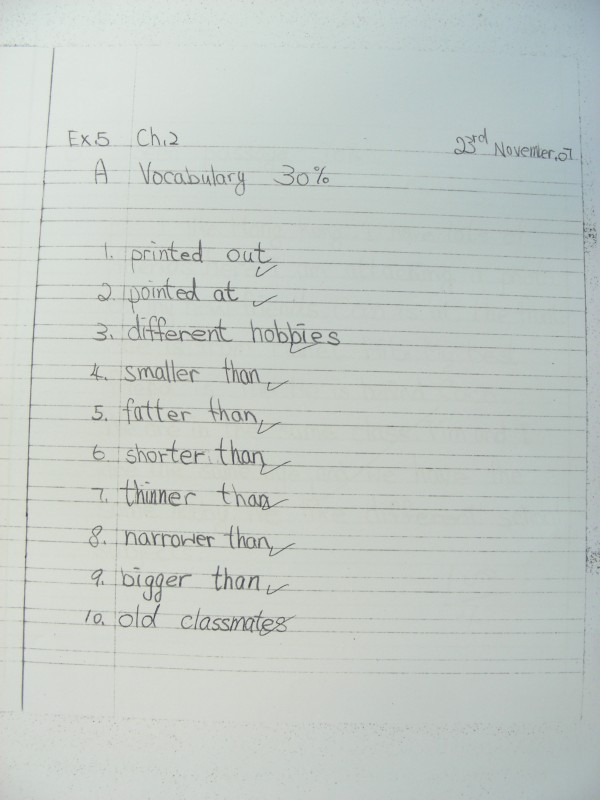 Ex.5 Ch.2 23rd November.07
A Vocabulary 30%
1. printed out
2. pointed at
3. different hobbies
4. smaller than
5. fatter than
6. shorter than
7. thinner than
8. narrower than
9. bigger than
10. old classmates